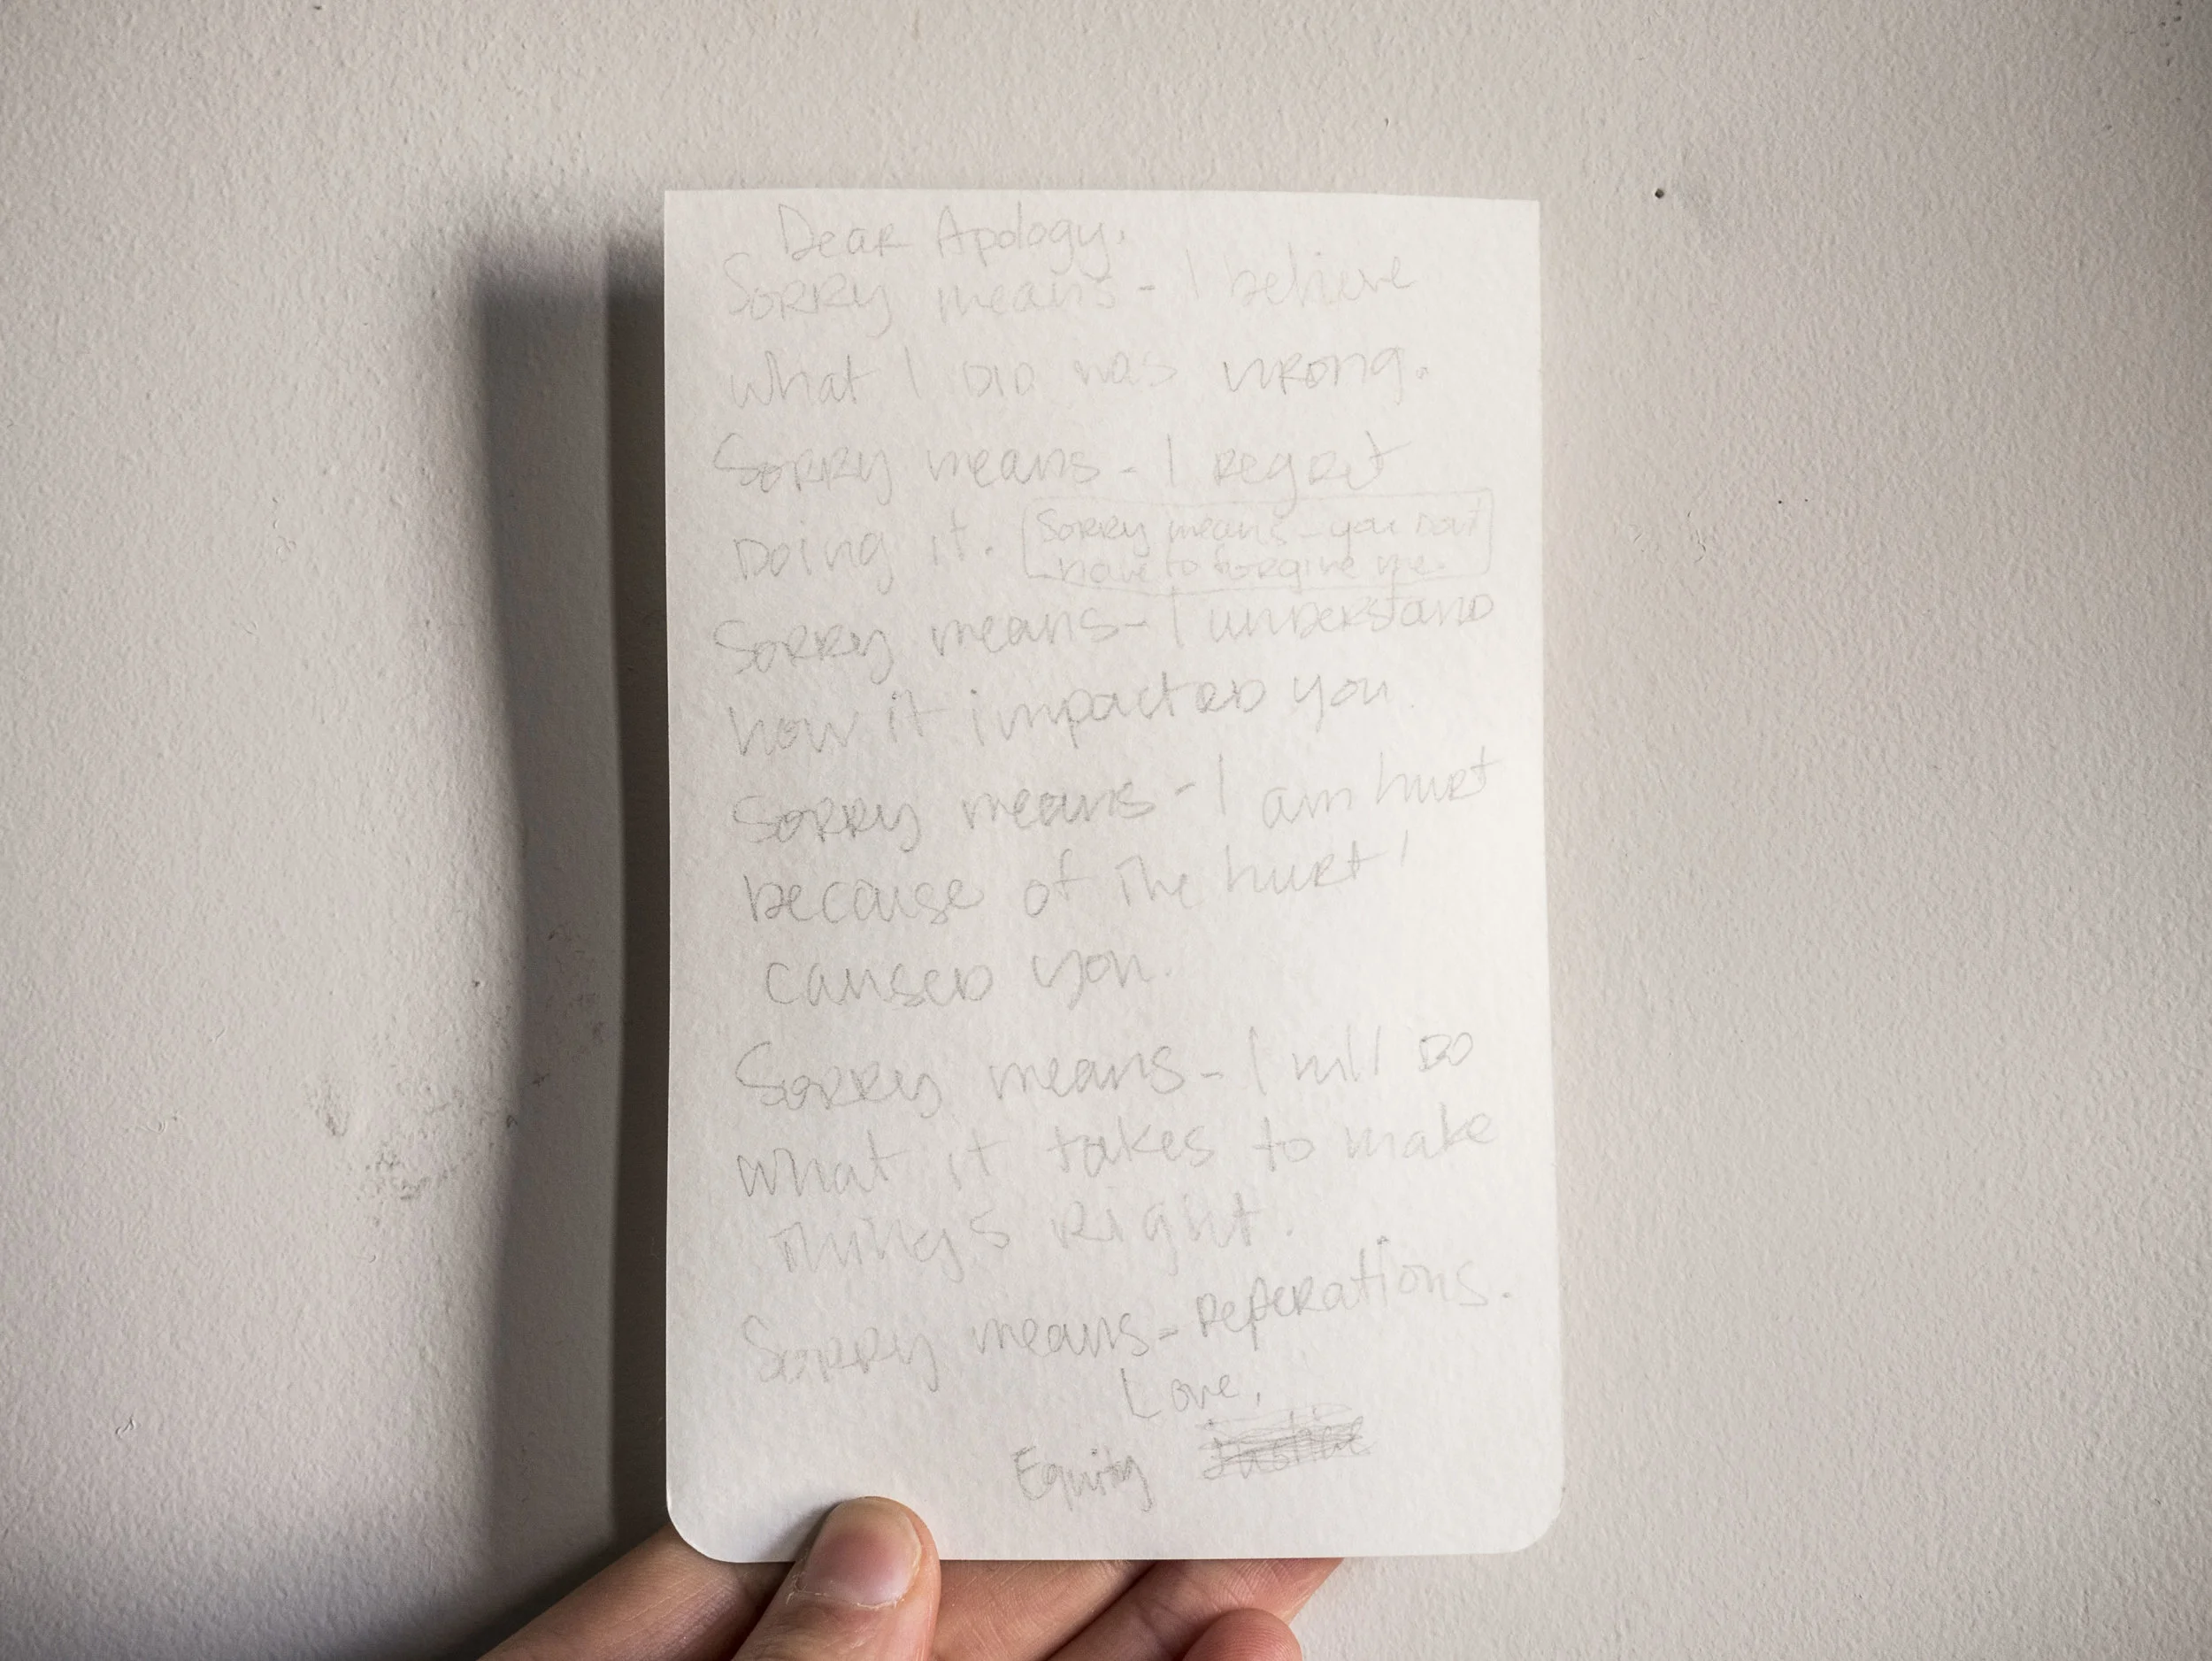 Dear Apology,
Sorry means - I believe
what I DID was wrong.
Sorry means - I regret
Doing it.
Sorry means - you Don't
have to forgive me.
Sorry means - I understand
how it impacted you.
Sorry means - I am hurt
because of the hurt I
caused you.
Sorry means - I will DO
what it takes to make
things Right.
Sorry means - Reperations.
Love,
Equity